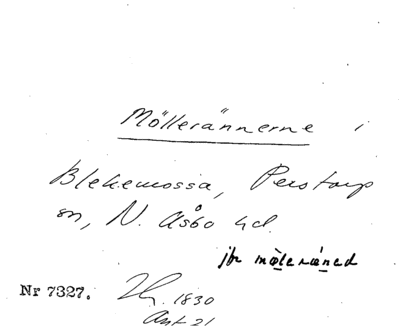 Möllerännerne i
Blekemossa, Perstorp
sn, N. Åsbo hd.
jfr möleräned
Nr 7327. 1830